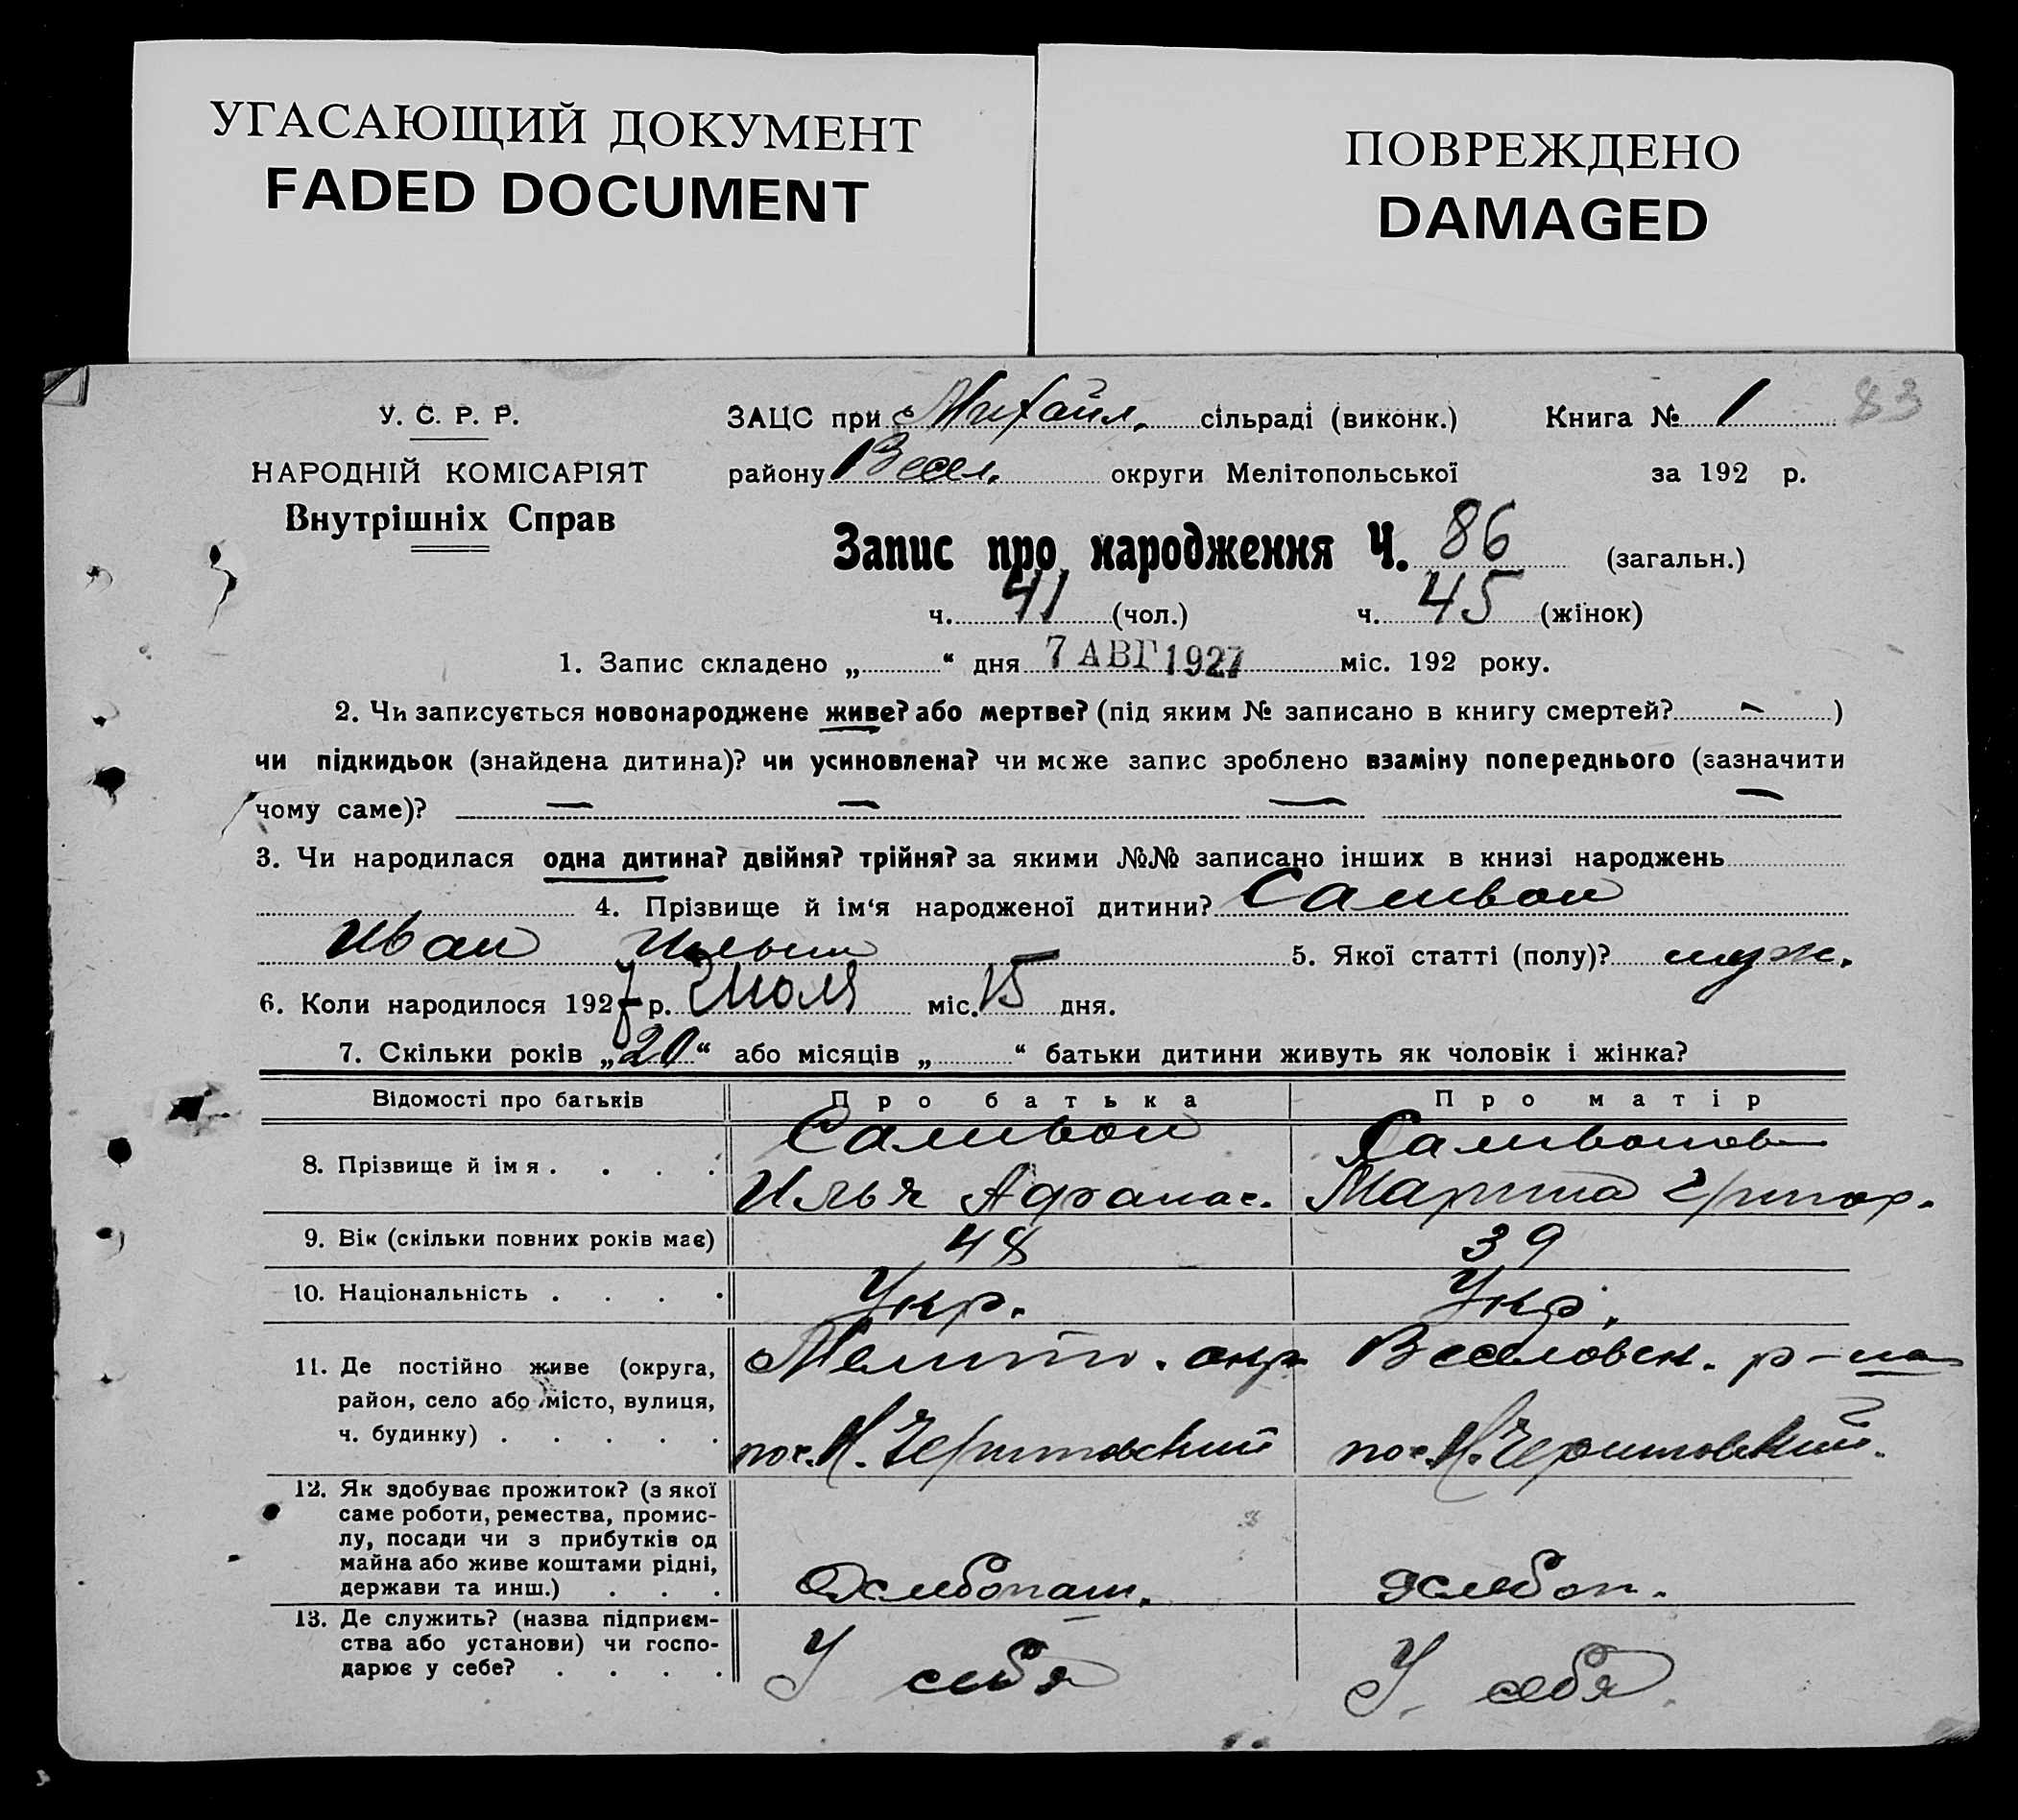 УГАСАЮЩИЙ ДОКУМЕНТ
FADED DOCUMENT
ПОВРЕЖДЕНО
DAMAGED
У. С. Р. Р.
НАРОДНІЙ КОМІСАРІЯТ
Внутрішніх Справ
ЗАЦС при Михайл. сільраді (виконк.) Книга № 1 83
району Весел. округи Мелітопольської за 192 р.
Запис про народження Ч. 86 (загальн.)
ч. 41 (чол.) ч. 45 (жінок)
1. Запис складено „ “ дня 7 АВГ 1927 міс. 192 року.
2. Чи записується новонароджене живе? або мертве? (під яким № записано в книгу смертей? — )
чи підкидьок (знайдена дитина)? чи усиновлена? чи може запис зроблено взаміну попереднього (зазначити
чому саме)? — — — —
3. Чи народилася одна дитина? двійня? трійня? за якими №№ записано інших в книзі народжень
4. Прізвище й ім‘я народженої дитини? Самвон
Иван Ильин 5. Якої статті (полу)? муж.
6. Коли народилося 1927 р. Июля міс. 15 дня.
7. Скільки років „20“ або місяців „ “ батьки дитини живуть як чоловік і жінка?
Відомості про батьків Про батька Про матір
8. Прізвище й імя . . . .
Самвон
Илья Афанас.
Марина Григор.
9. Вік (скільки повних років має) 48 39
10. Національність . . . . Укр. Укр.
11. Де постійно живе (округа,
район, село або місто, вулиця,
ч. будинку) . . . . .
Мелит. окр. Веселовск. р-на
пос.
пос.
12. Як здобуває прожиток? (з якої
саме роботи, ремества, промис-
лу, посади чи з прибутків од
майна або живе коштами рідні,
держави та инш.) . . .
Хлебопаш. Хлебоп.
13. Де служить? (назва підприєм-
ства або установи) чи госпо-
дарює у себе? . . . .
У себя У себя